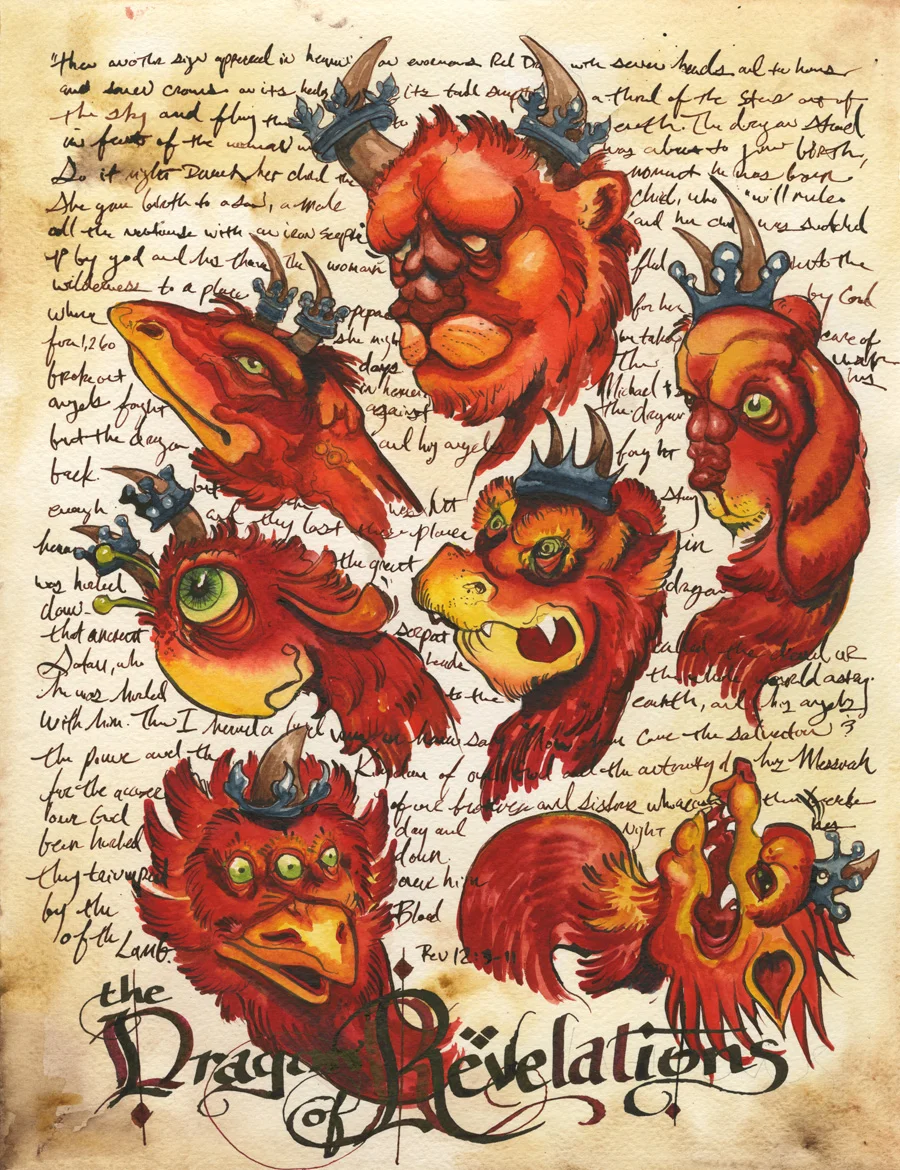 "then another sign appeared in heaven: an enormous Red Dra with seven heads and ten horns
and seven crowns on its heads its tail swept a third of the stars out of
the sky and flung the to earth. The dragon stood
in front of the woman w was about to give birth,
So it might Devour her child the moment he was born.
She gave birth to a son, a male child, who "will rule
all the nations with an iron scepter and her child was snatched
up by god and his throne The woman fled into the
wilderness to a place by God
where prepa for her
for 1,260 she migh be taken care of
days Then
broke out in heaven Michael his
angels fought against the dragon
but the dragon and his angels fought
back. but
enough and they lost their place in
heaven the great dragon
was hurled
down
that ancient serpent called the devil or
Satan, who leads the whole world astray.
he was hurled to the earth, and his angels
with him. Then I heard a loud voice in heaven say Now have come the salvation &
the power and the Kingdom of our God and the authority of his Messiah
for the accuser of our brothers and sisters who
our God day and Night
been hurled down.
they triumped over him
by the Blood
of the Lamb. Rev 12:
the
Drago Rëvelations
of